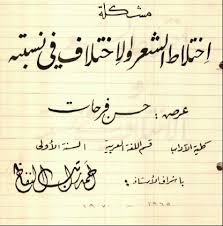 مشكلة
إختلاط الشعر والإختلاف في نسبته
عرض: حسن فرحات
كلية الآداب قسم اللغة العربية السنة الأولى
بإشراف الأستاذ: